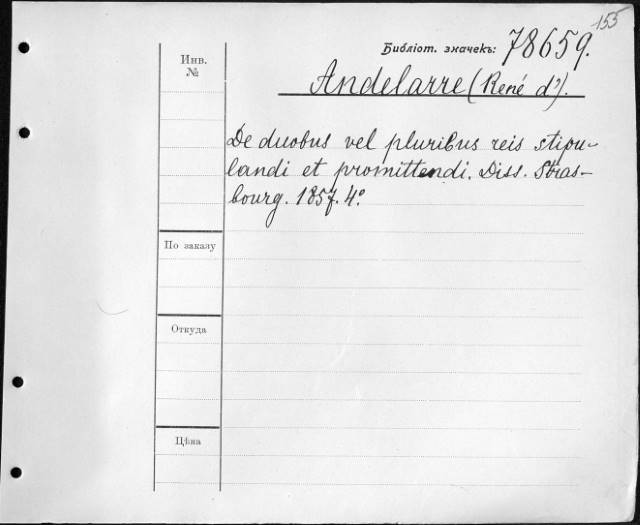 155
Библіот. значекъ: 78659.
Инв.
№
Andelarre (René d').
De duobus vel pluribus reis stipu-
landi et promittendi. Diss. Stras-
bourg. 1857. 4°.
По заказу
Откуда
Цѣна